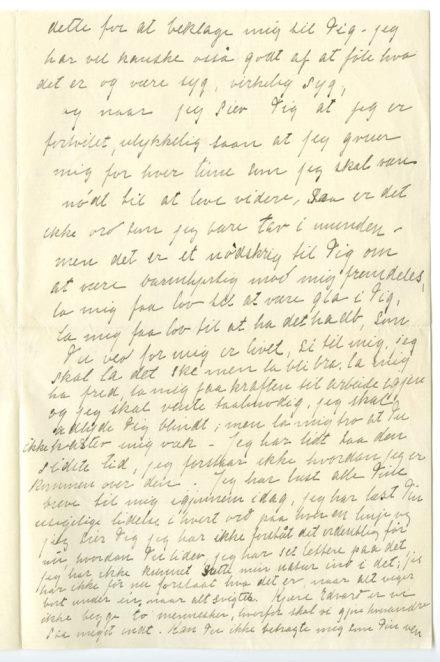 dette for at beklage mig til Dig - jeg
har vel kanske også godt af at føle hva
det er og være syg, virkelig syg,
og naar jeg sier Dig at jeg er
fortvilet, ulykkelig saan at jeg gruer
mig for hver time som jeg skal være
nødt til at leve videre, saa er det
ikke ord som jeg bare tar i munden -
men det er et nødskrig til Dig om
at være barmhjertig mod mig fremdeles,
la mig faa lov til at være gla i Dig,
la mig faa lov til at ha det haab, som
Du ved for mig er livet, si til mig, jeg
skal la det ske men la bli bra, la mig
ha fred, la mig faa kraften til arbeide igjen
og jeg skal vente taalmodig, jeg skal
adlyde Dig blindt; men la mig tro at Du
ikke kaster mig væk - Jeg har lidt saa den
sidste tid, jeg forstaar ikke hvordan jeg er
kommen over den. Jeg har læst alle Dine
breve til mig igjennem idag, jeg har læst Din
usigelige lidelse i hvert ord paa hver en linje og
jeg sier Dig jeg har ikke forstået det ordentlig før
nu, hvordan Du lider, jeg har set lettere paa det
jeg har ikke kunnet sætte min natur ind i det; jeg
har ikke før nu forstaat hva det er, naar alt viger
bort under en, naar alt svigter. Kjære Edvard er vi
ikke begge to mennesker, hvorfor skal vi gjøre hverandre
saa meget ondt. Kan Du ikke betragte mig som Din ven